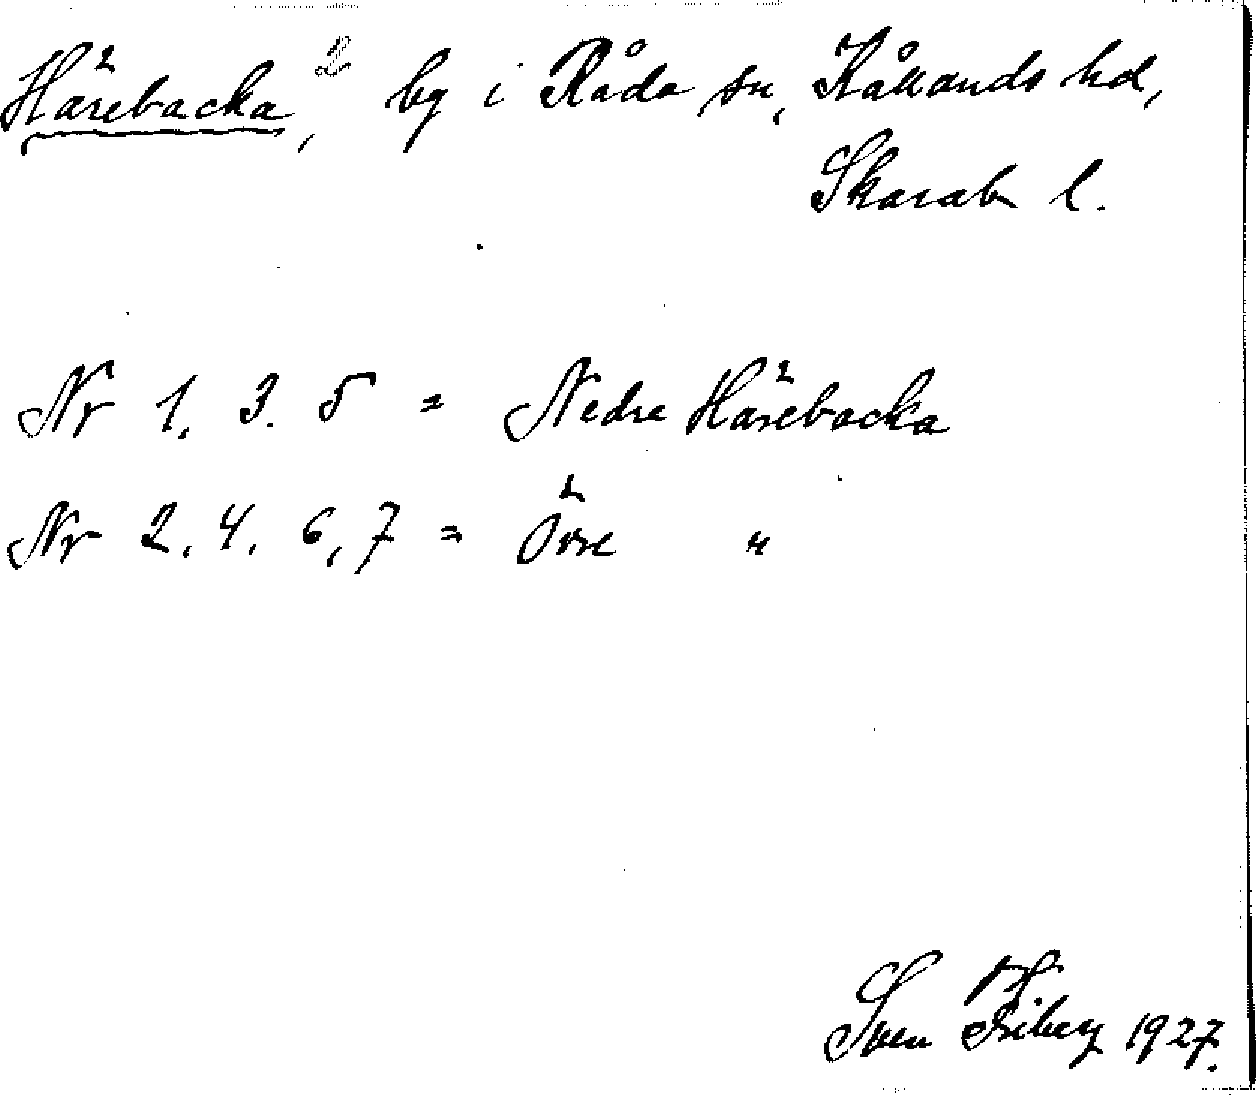 Härebacka, 2 by i Råda sn, Kållands hd,
Skarab l.
Nr 1, 3. 5 = Nedre Härebacka
Nr 2, 4. 6, 7 = Övre "
Sven Friberg 1927.